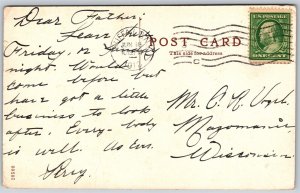 Dear Father:
Leave here
Friday, or Saturday
night. Would
come before but
have got a little
business to look
after. Every-body
is well. As ever.
Roy.
POST CARD
This side for address
U.S. POSTAGE
ONE CENT
Mr. O. A. Vogel,
Mazomanie
Wisconsin